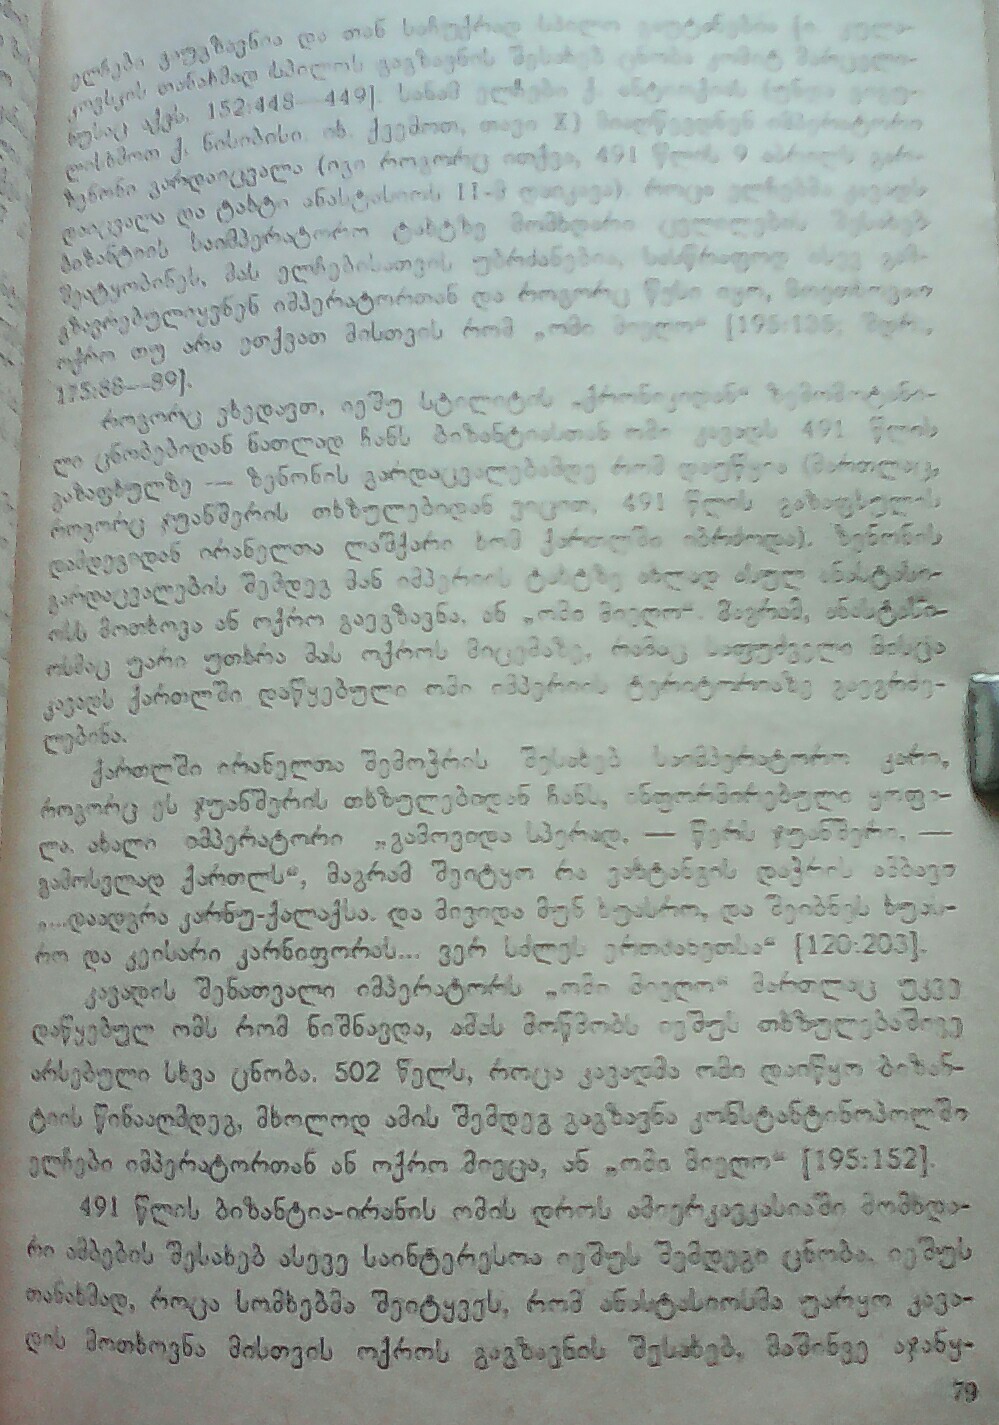 ელჩები გიუგზავნია და თან საჩუქრად სპილო გაუტანებია [ი. კულა-
კოვსკის თანახმად სპილოს გაგზავნის შესახებ ცნობა კომიტ მარცელი-
ნუსაც აქვს. 152:448—449]. სანამ ელჩები ქ. ანტიოქიას (უნდა ვიგუ-
ლისხმოთ ქ. ნისიბისი. იხ. ქვემოთ, თავი X) მიაღწევდნენ იმპერატორი
ზენონი გარდაიცვალა (იგი როგორც ითქვა, 491 წლის 9 აპრილს გარ-
დაიცვალა და ტახტი ანასტასიოს II-მ დაიკავა). როცა ელჩებმა კავადს
ბიზანტიის საიმპერატორო ტახტზე მომხდარი ცვლილების შესახებ
შეატყობინეს, მას ელჩებისათვის უბრძანებია, სასწრაფოდ ისევ გამ-
გზავრებულიყვნენ იმპერატორთან და როგორც წესი იყო, მოეთხოვათ
ოქრო თუ არა ეთქვათ მისთვის რომ „ომი მიეღო“ [195:135; შდრ.,
175:88—89].
როგორც ვხედავთ, იეშუ სტილიტის „ქრონიკიდან“ ზემომოტანი-
ლი ცნობებიდან ნათლად ჩანს ბიზანტიასთან ომი კავადს 491 წლის
გაზაფხულზე — ზენონის გარდაცვალებამდე რომ დაუწყია (მართლაც,
როგორც ჯუანშერის თხზულებიდან ვიცით, 491 წლის გაზაფხულის
დამდეგიდან ირანელთა ლაშქარი ხომ ქართლში იბრძოდა). ზენონის
გარდაცვალების შემდეგ მან იმპერიის ტახტზე ახლად ასულ ანასტასი-
ოსს მოთხოვა ან ოქრო გაეგზავნა, ან „ომი მიეღო“. მაგრამ, ანასტასი-
ოსმაც უარი უთხრა მას ოქროს მიცემაზე, რამაც საფუძველი მისცა
კავადს ქართლში დაწყებული ომი იმპერიის ტერიტორიაზე გაეგრძე-
ლებინა.
ქართლში ირანელთა შემოჭრის შესახებ საიმპერატორო კარი,
როგორც ეს ჯუანშერის თხზულებიდან ჩანს, ინფორმირებული ყოფი-
ლა. ახალი იმპერატორი „გამოვიდა სპერად, — წერს ჯუანშერი, —
გამოსვლად ქართლს“, მაგრამ შეიტყო რა ვახტანგის დაჭრის ამბავი
„...დაადგრა კარნუ-ქალაქსა. და მივიდა მუნ ხუასრო, და შეიბნეს ხუას-
რო და კეისარი კარნიფორას... ვერ სძლეს ერთმანეთსა“ [120:203].
კავადის შენათვალი იმპერატორს „ომი მიეღო“ მართლაც უკვე
დაწყებულ ომს რომ ნიშნავდა, ამას მოწმობს იეშუს თხზულებაშივე
არსებული სხვა ცნობა. 502 წელს, როცა კავადმა ომი დაიწყო ბიზან-
ტიის წინააღმდეგ, მხოლოდ ამის შემდეგ გაგზავნა კონსტანტინოპოლში
ელჩები იმპერატორთან ან ოქრო მიეცა, ან „ომი მიეღო“ [195:152].
491 წლის ბიზანტია-ირანის ომის დროს ამიერკავკასიაში მომხდა-
რი ამბების შესახებ ასევე საინტერესოა იეშუს შემდეგი ცნობა. იეშუს
თანახმად, როცა სომხებმა შეიტყვეს, რომ ანასტასიოსმა უარყო კავა-
დის მოთხოვნა მისთვის ოქროს გაგზავნის შესახებ, მაშინვე აჯანყ-
79